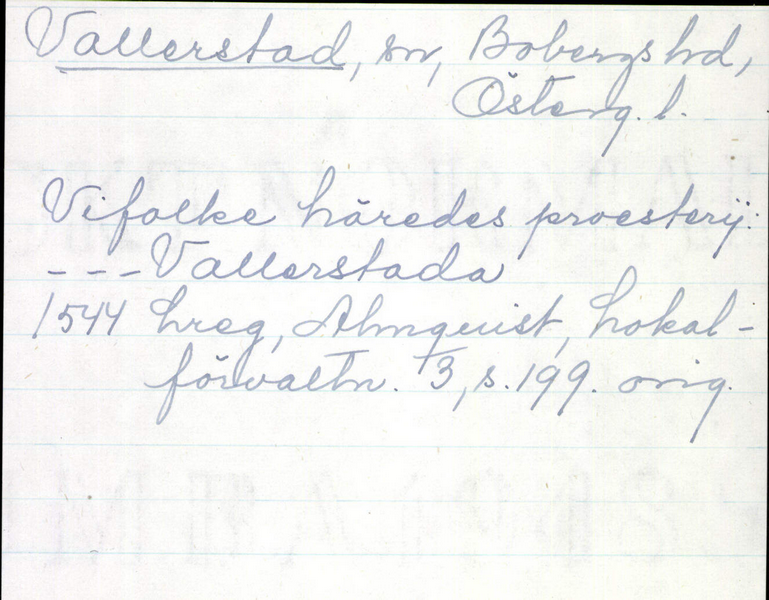 Vallerstad, sn, Bobergs hd,
Österg. l.
Vifolke häredes proesterij:
--- Vallerstada
1544 hreg, Almquist, Lokal-
förvaltn. 3, s. 199. orig.